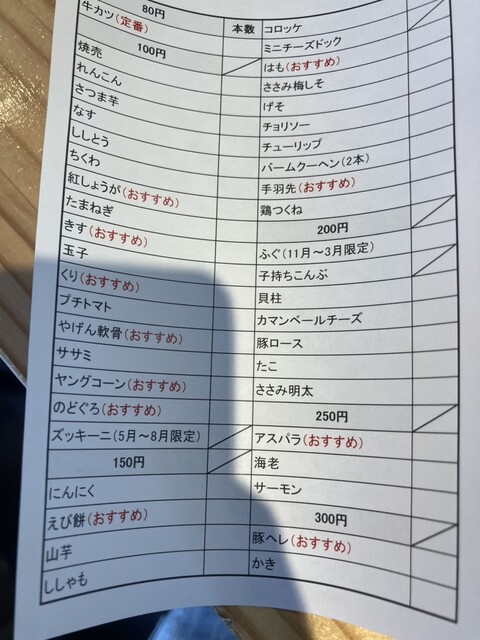 80円
牛カツ(定番)
100円
焼売
れんこん
さつま芋
なす
ししとう
ちくわ
紅しょうが(おすすめ)
たまねぎ
きす(おすすめ)
玉子
くり(おすすめ)
プチトマト
やげん軟骨(おすすめ)
ササミ
ヤングコーン(おすすめ)
のどぐろ(おすすめ)
ズッキーニ(5月~8月限定)
150円
にんにく
えび餅(おすすめ)
山芋
ししゃも
本数
コロッケ
ミニチーズドック
はも(おすすめ)
ささみ梅しそ
げそ
チョリソー
チューリップ
バームクーヘン(2本)
手羽先(おすすめ)
鶏つくね
200円
ふぐ(11月~3月限定)
子持ちこんぶ
貝柱
カマンベールチーズ
豚ロース
たこ
ささみ明太
250円
アスパラ(おすすめ)
海老
サーモン
300円
豚ヘレ(おすすめ)
かき